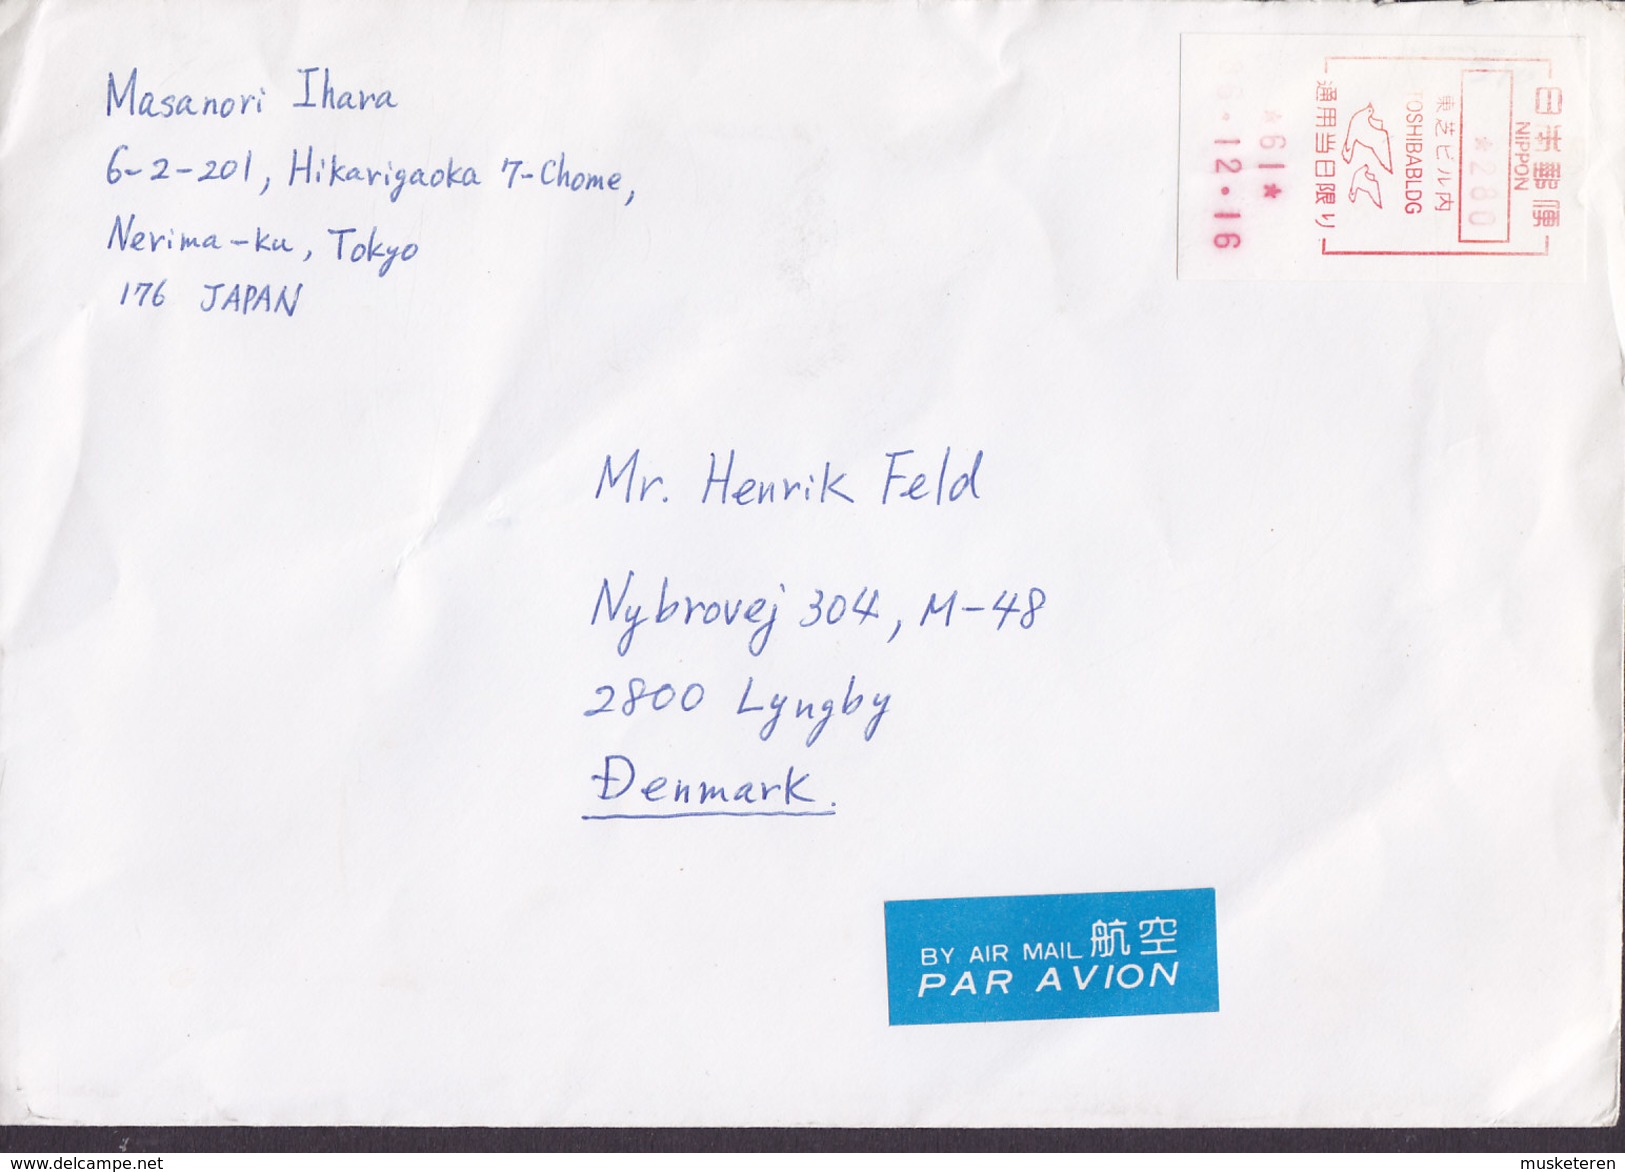 Masanori Ihara
6-2-201, Hikarigaoka 7-Chome,
Nerima-ku, Tokyo
176 JAPAN
日本郵便
NIPPON
*280
東芝ビル内
TOSHIBABLDG
通用当日限り
*61*
12.16
Mr. Henrik Feld
Nybrovej 304, M-48
2800 Lyngby
Denmark.
BY AIR MAIL 航空
PAR AVION
delcampe.net
musketeren